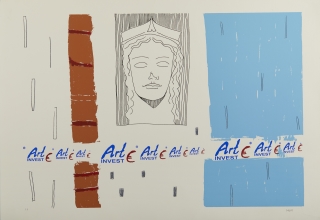 Art € Art € Art € Art € Art € Art € Art € Art € Art €
INVEST INVEST INVEST INVEST INVEST INVEST INVEST INVEST INVEST